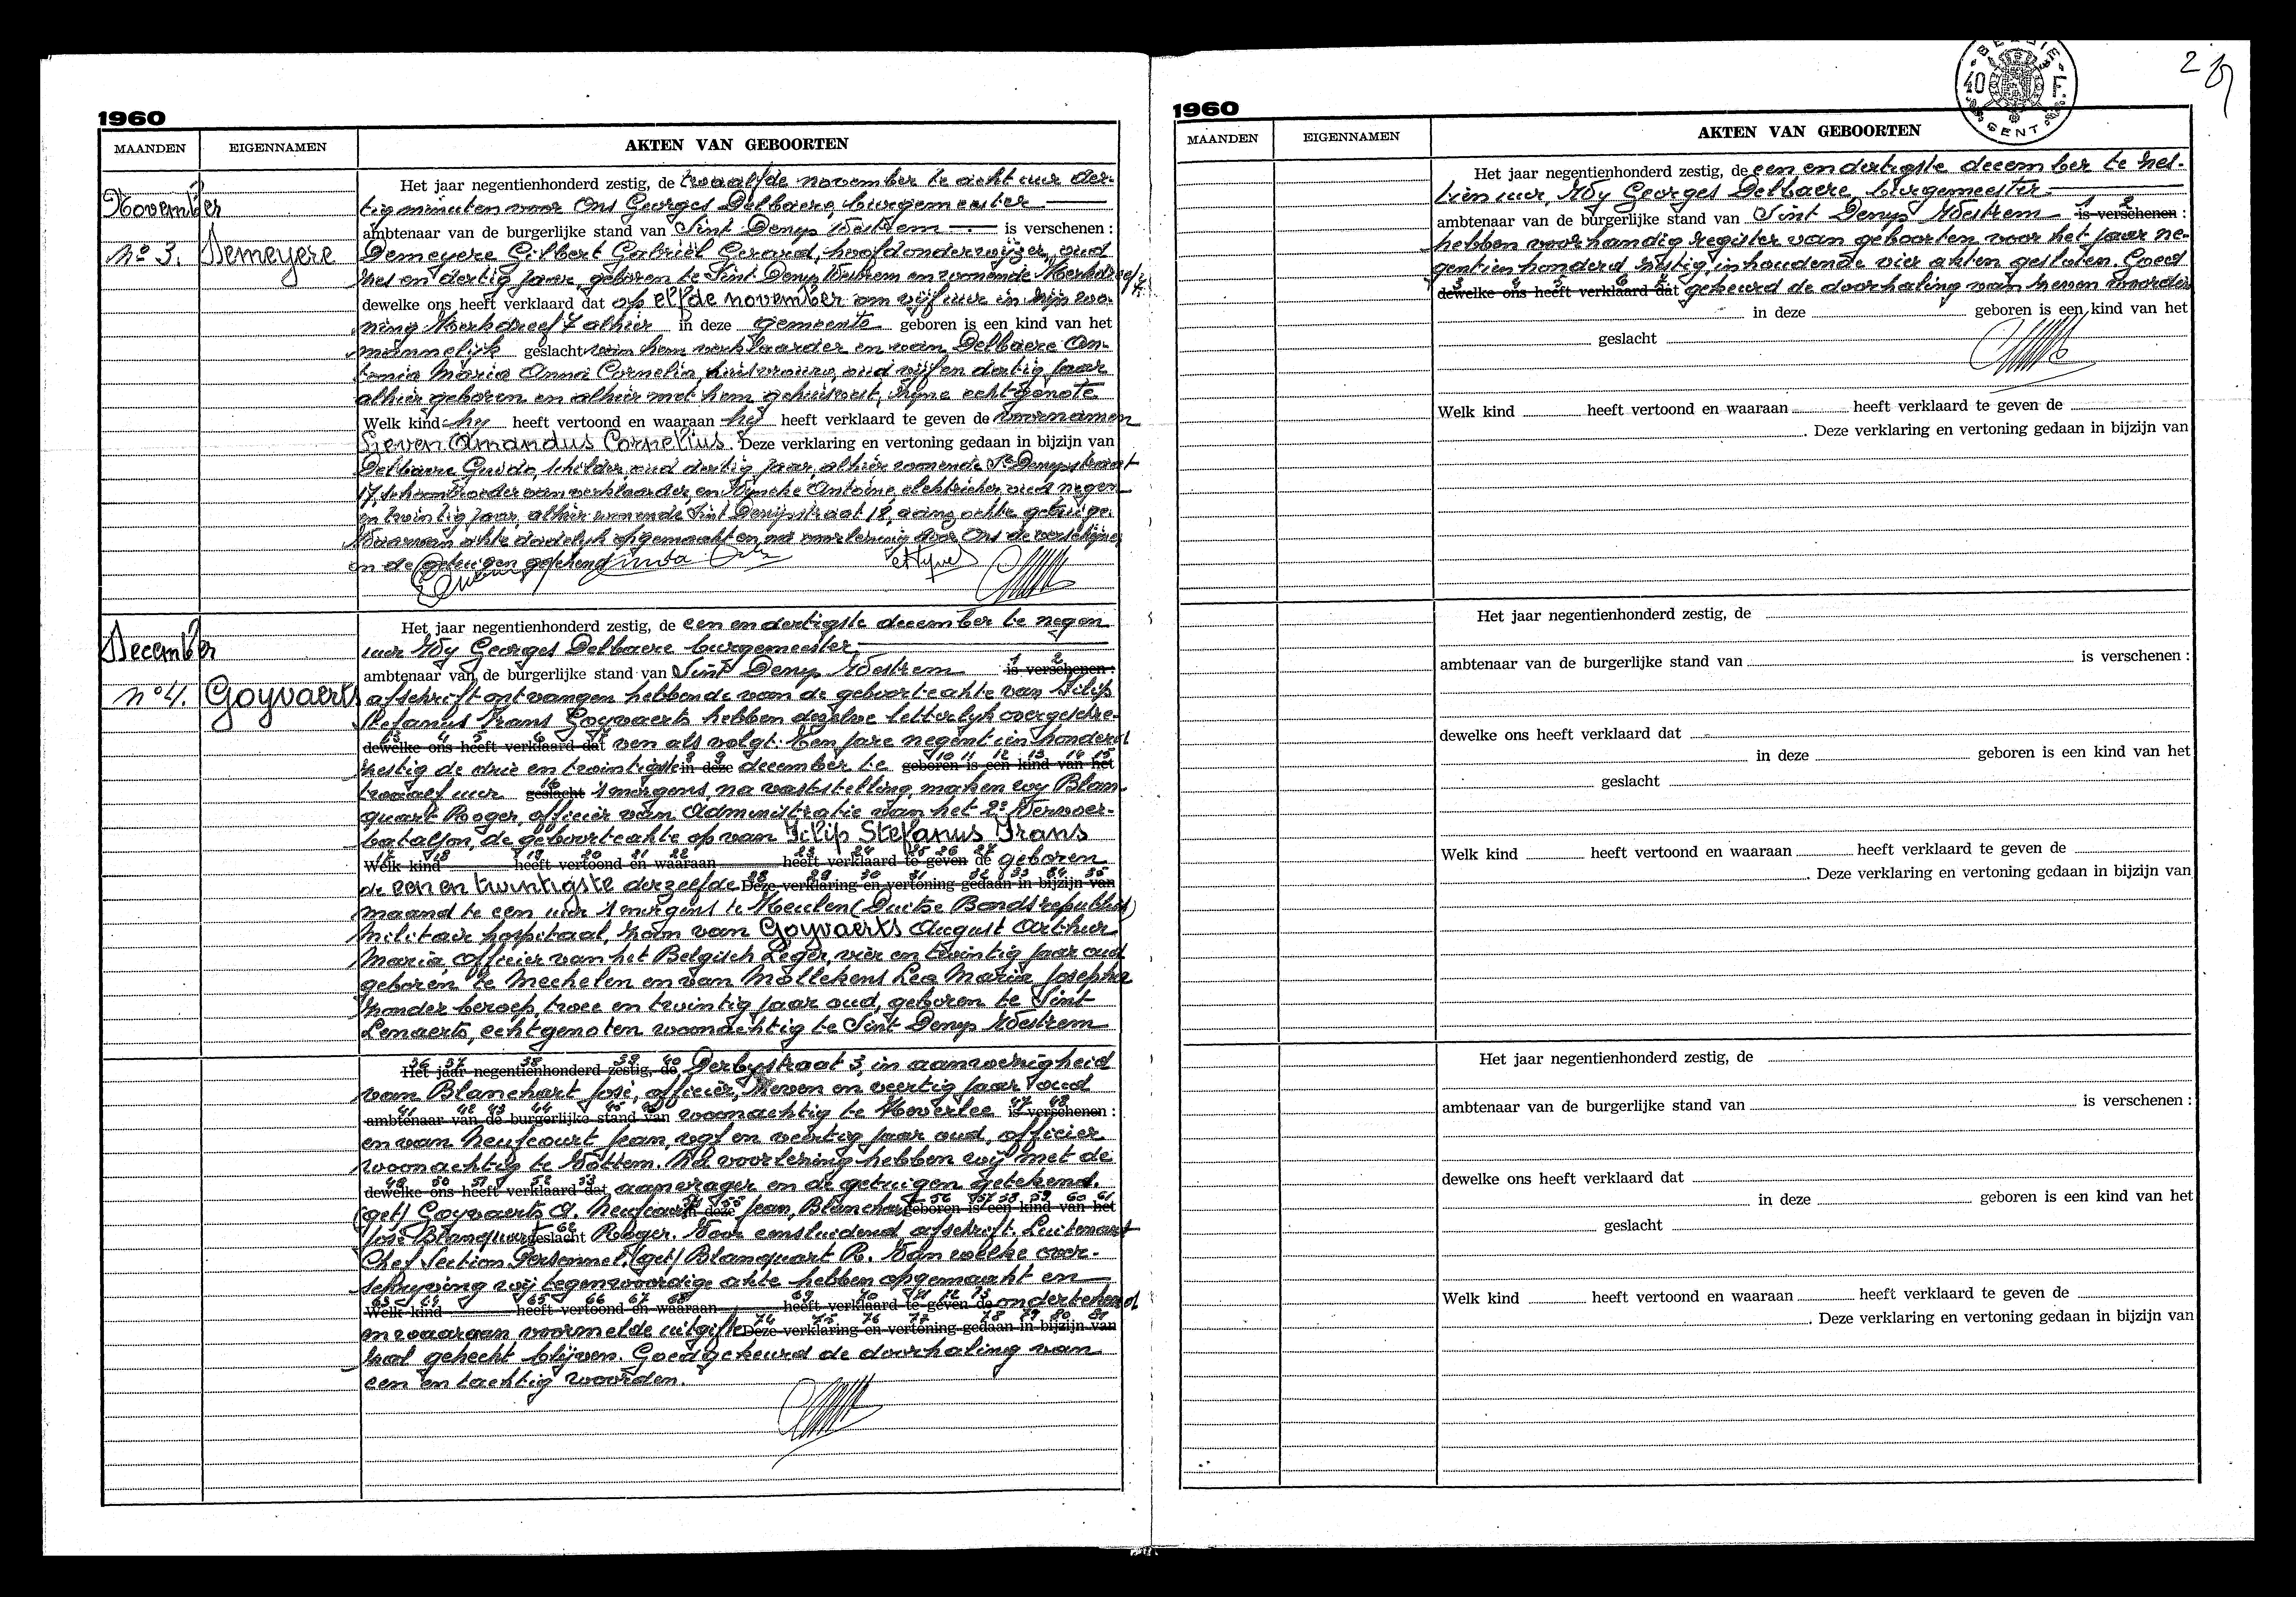 1960
MAANDEN EIGENNAMEN AKTEN VAN GEBOORTEN
November
No 3. Demeyere
Het jaar negentienhonderd zestig, de twaalfde november te acht uur der-
tig minuten voor Ons Georges Delbaere, burgemeester
ambtenaar van de burgerlijke stand van Sint Denys Westrem is verschenen :
Demeyere Gilbert Gabriël Gerard, hoofdonderwijzer, oud
zes en dertig jaar, geboren te Sint Denys Westrem en wonende Kerkdreef 7
dewelke ons heeft verklaard dat op elfde november om vijf uur in zijn wo-
ning Kerkdreef 7 alhier in deze gemeente geboren is een kind van het
mannelijk geslacht van hem verklaarder en van Delbaere An-
tonia Maria Anna Cornelia, huisvrouw, oud vijf en dertig jaar
alhier geboren en alhier met hem gehuisvest, zijne echtgenote
Welk kind hy heeft vertoond en waaraan hij heeft verklaard te geven de voornamen
Lieven Amandus Cornelius. Deze verklaring en vertoning gedaan in bijzijn van
Delbaere Guido, schilder, oud dertig jaar, alhier wonende St Denysstraat
17, schoonbroeder van verklaarder, en Antoine, elektrieker oud negen
en twintig jaar, alhier wonende Sint Denijsstraat 18, aangezochte getuigen.
Waarvan akte dadelijk opgemaakt en na voorlezing door Ons de verschijner
en de getuigen getekend
December
no 4. Goyvaerts
Het jaar negentienhonderd zestig, de een en dertigste december te negen
uur Wy Georges Delbaere burgemeester
ambtenaar van de burgerlijke stand van Sint Denys Westrem 1 2 is verschenen :
afschrift ontvangen hebbende van de geboorteakte van Filip
Stefanus Frans Goyvaerts hebben dezelve letterlyk overgeschre-
3 4 5 6 7 dewelke ons heeft verklaard dat ven als volgt: Ten jare negentienhonderd
zestig de drie en twintigste 8 9 in deze december te 10 11 12 13 14 15 geboren is een kind van het
twaalf uur 16 geslacht 's morgens, na vaststelling, maken wy Blan-
quart Roger, officier van Administratie van het 2e Vervoer-
bataljon, de geboorteakte op van Filip Stefanus Frans
17 18 19 20 21 22 23 24 25 26 27 Welk kind heeft vertoond en waaraan heeft verklaard te geven de geboren
de een en twintigste derzelfde 28 29 30 31 32 33 34 35 Deze verklaring en vertoning gedaan in bijzijn van
maand te een uur 's morgens te Keulen (Duitse Bondsrepubliek)
Militair hospitaal, zoon van Goyvaerts August Arthur
Maria, officier van het Belgisch Leger, vier en twintig jaar oud
geboren te Mechelen en van Mollekens Lea Maria Josepha
zonder beroep, twee en twintig jaar oud, geboren te Sint
Lenaerts, echtgenoten woonachtig te Sint Denys Westrem
36 37 38 39 40 Het jaar negentienhonderd zestig, de Derbystraat 3, in aanwezigheid
van Blanchart José, officier, zeven en veertig jaar oud
41 42 43 44 45 46 ambtenaar van de burgerlijke stand van woonachtig te Heverlee 47 48 is verschenen :
en van Neufcourt Jean, vyf en veertig jaar oud, officier
woonachtig te Wottem. Na voorlezing hebben wij met de
49 50 51 52 53 dewelke ons heeft verklaard dat aanvrager en de getuigen getekend.
(get) Goyvaerts A. Neufcourt 54 55 in deze Jean, Blanchart 56 57 58 59 60 61 geboren is een kind van het
José Blanquart 62 geslacht Roger. Voor eensluidend afschrift. Luitenant
Chef Section Personnel. (get) Blanquart R. Van welke over-
schryving wij tegenwoordige akte hebben opgemaakt en
63 64 65 66 67 68 69 70 71 72 73 Welk kind heeft vertoond en waaraan heeft verklaard te geven de ondertekend
en waaraan voormelde uitgifte 74 75 76 77 78 79 80 81 Deze verklaring en vertoning gedaan in bijzijn van
zal gehecht blijven. Goedgekeurd de doorhaling van
een en tachtig woorden.
1960
BELGIE 40 F. GENT
2
MAANDEN EIGENNAMEN AKTEN VAN GEBOORTEN
Het jaar negentienhonderd zestig, de een en dertigste december te zes-
tien uur, Wy Georges Delbaere, burgemeester
ambtenaar van de burgerlijke stand van Sint Denys Westrem 1 2 is verschenen :
hebben voorhandig register van geboorten voor het jaar ne-
gentienhonderd zestig, inhoudende vier akten gesloten. Goed
3 4 5 6 7 dewelke ons heeft verklaard dat gekeurd de doorhaling van zeven woorden
in deze geboren is een kind van het
geslacht
Welk kind heeft vertoond en waaraan heeft verklaard te geven de
. Deze verklaring en vertoning gedaan in bijzijn van
Het jaar negentienhonderd zestig, de
ambtenaar van de burgerlijke stand van is verschenen :
dewelke ons heeft verklaard dat
in deze geboren is een kind van het
geslacht
Welk kind heeft vertoond en waaraan heeft verklaard te geven de
. Deze verklaring en vertoning gedaan in bijzijn van
Het jaar negentienhonderd zestig, de
ambtenaar van de burgerlijke stand van is verschenen :
dewelke ons heeft verklaard dat
in deze geboren is een kind van het
geslacht
Welk kind heeft vertoond en waaraan heeft verklaard te geven de
. Deze verklaring en vertoning gedaan in bijzijn van